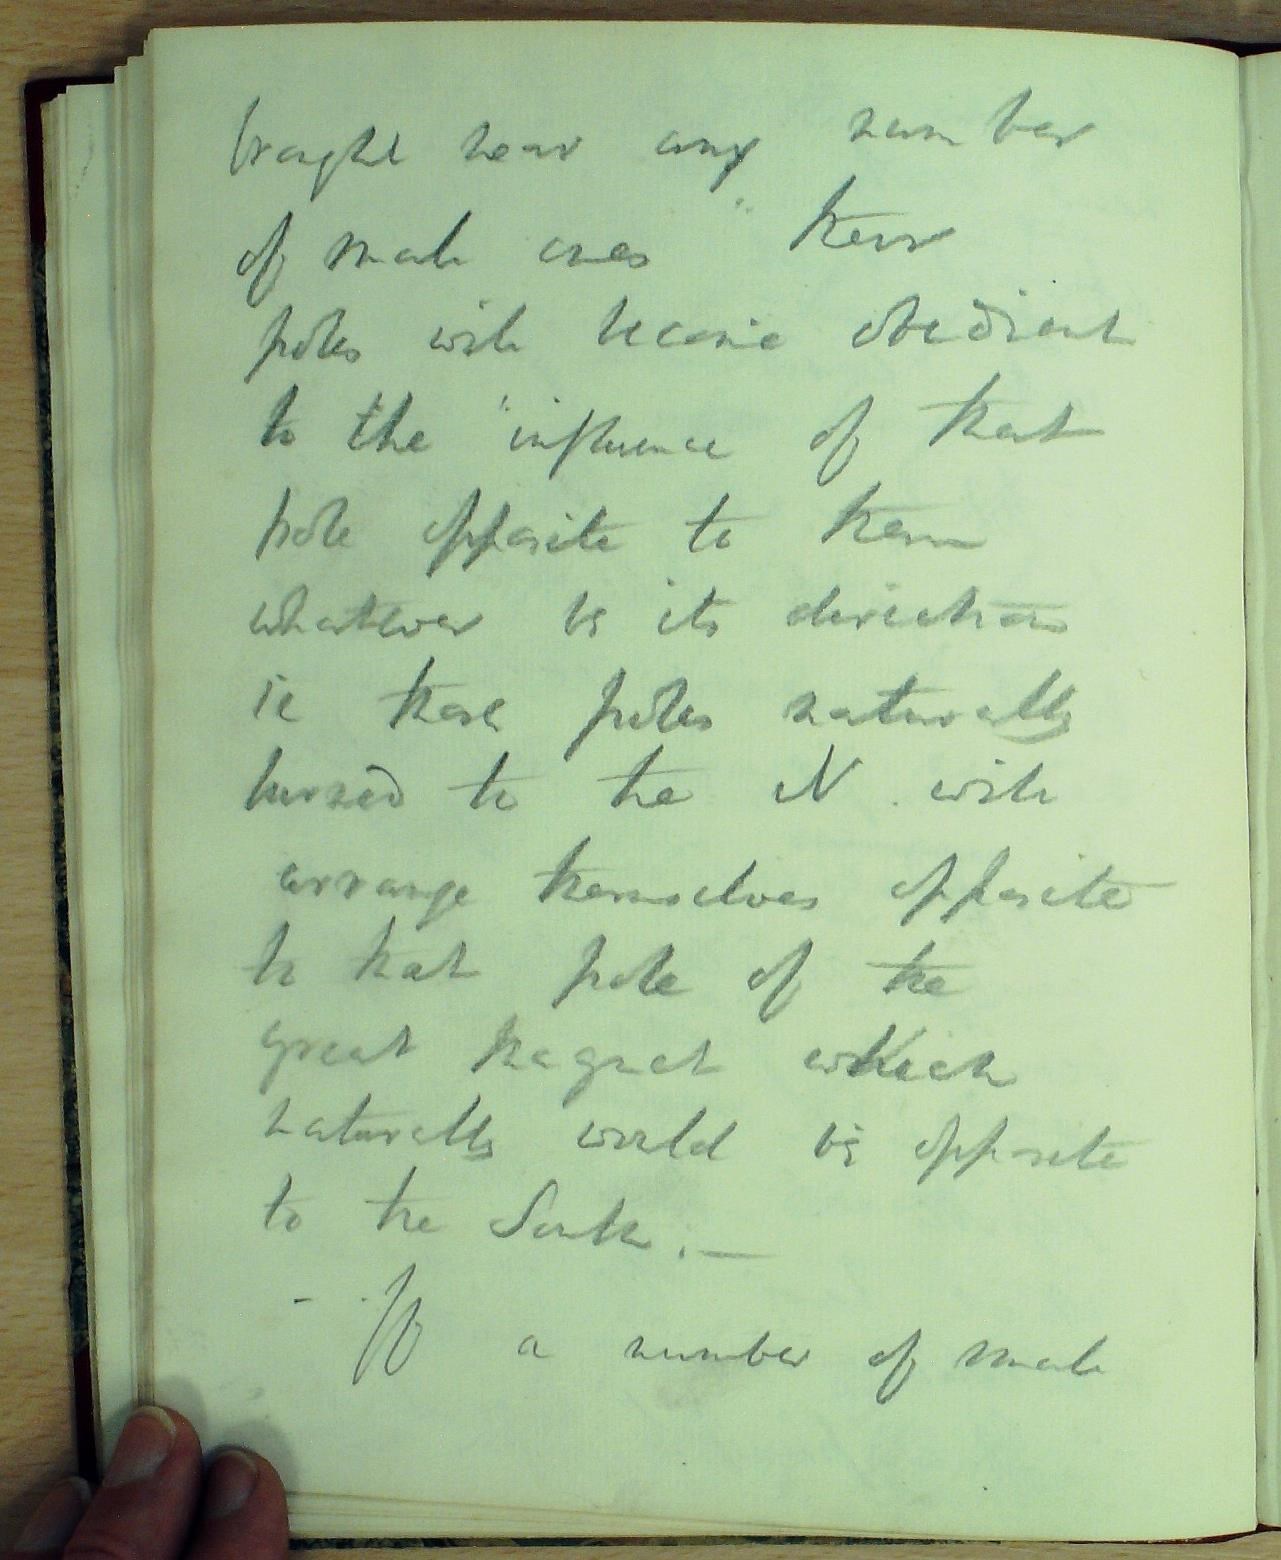 brought near any number
of small ones their
poles will become obedient
to the influence of that
pole opposite to them
whatever be its direction
ie those poles naturally
turned to the N. will
arrange themselves opposite
to that pole of the
great magnet which
naturally would be opposite
to the South. —
- . If a number of small